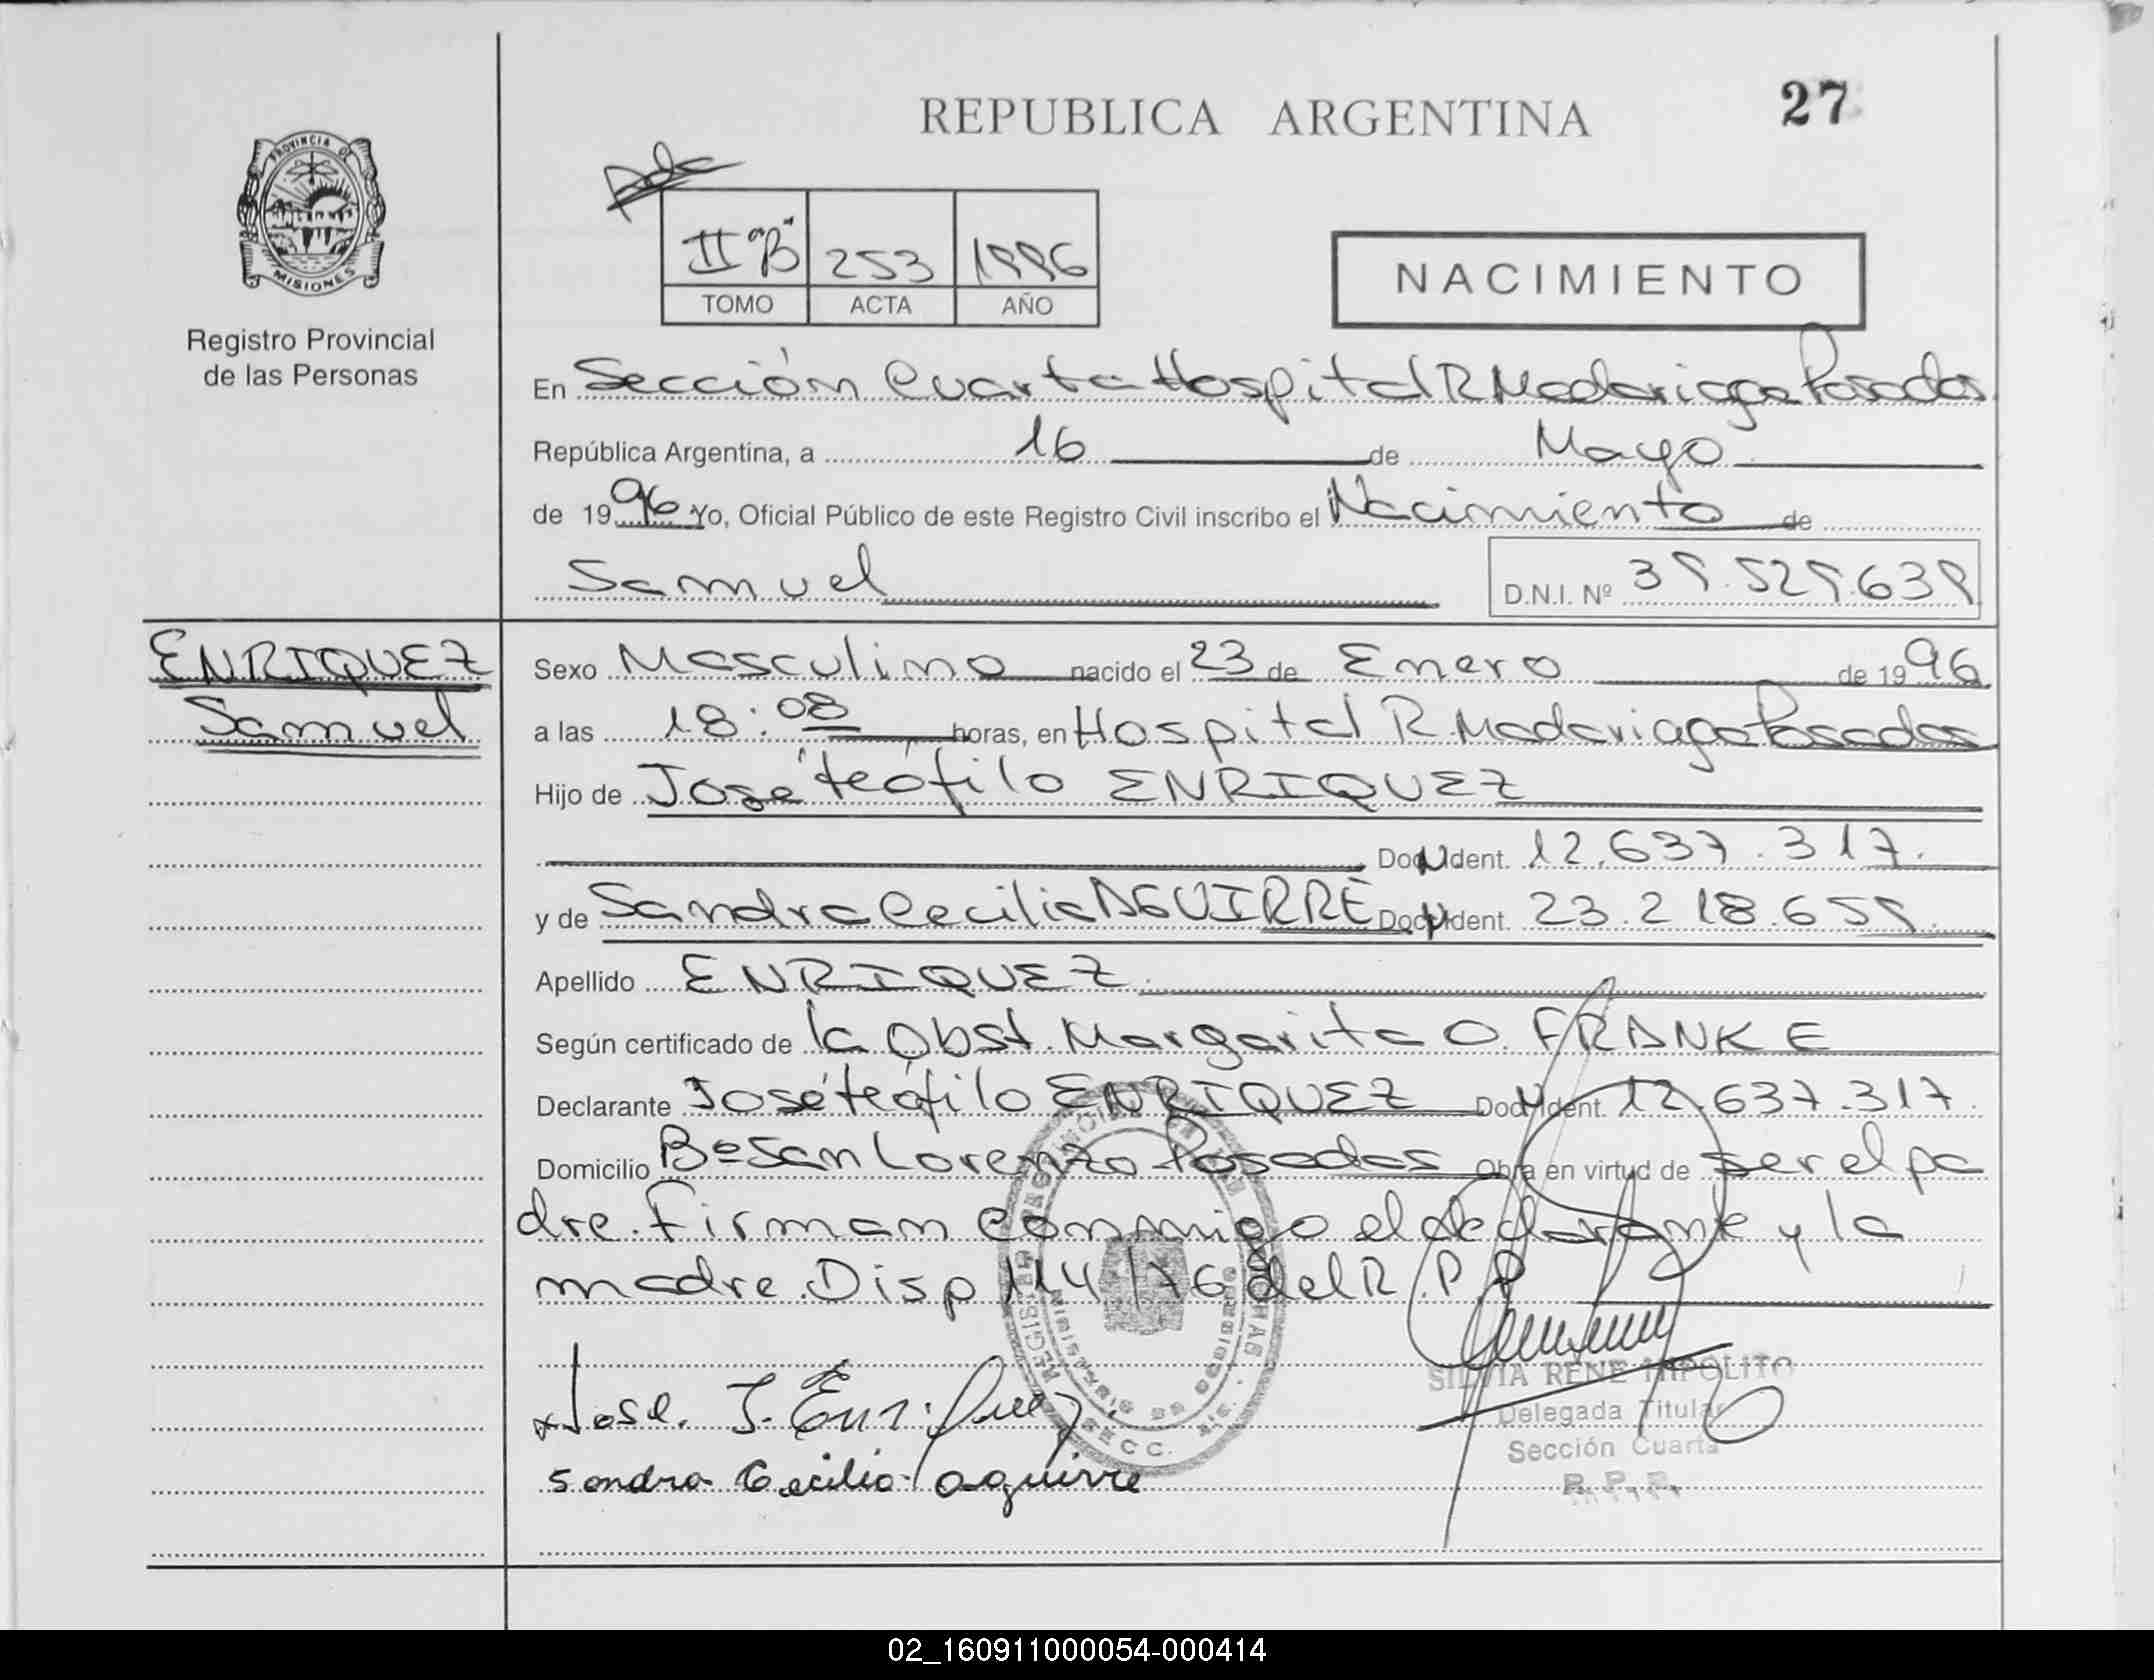 REPUBLICA ARGENTINA
27
PROVINCIA DE
MISIONES
Registro Provincial
de las Personas
II "B" 253 1996
TOMO ACTA AÑO
NACIMIENTO
En Sección Cuarta Hospital R Madariaga Posadas
República Argentina, a 16 de Mayo
de 1996 Yo, Oficial Público de este Registro Civil inscribo el Nacimiento de
Samuel
D.N.I. Nº 39.529.639
ENRIQUEZ
Samuel
Sexo Masculino nacido el 23 de Enero de 1996
a las 18:08 horas, en Hospital R. Madariaga Posadas
Hijo de José teófilo ENRIQUEZ
Doc. Ident. 12.637.317.
y de Sandra Cecilia AGUIRRE Doc. Ident. 23.218.659.
Apellido ENRIQUEZ
Según certificado de la Obst. Margarita O. FRANKE
Declarante José teófilo ENRIQUEZ Doc. Ident. 12.637.317.
Domicilio Bº San Lorenzo Posadas Obra en virtud de ser el pa
dre. Firman conmigo el declarante y la
madre. Disp 114/76 del R.P.P
Jose. T. Enriquez
Sandra Cecilia aguirre
SILVIA RENE HIPOLITO
Delegada Titular
Sección Cuarta
R. P. P.
SECC.
02_160911000054-000414